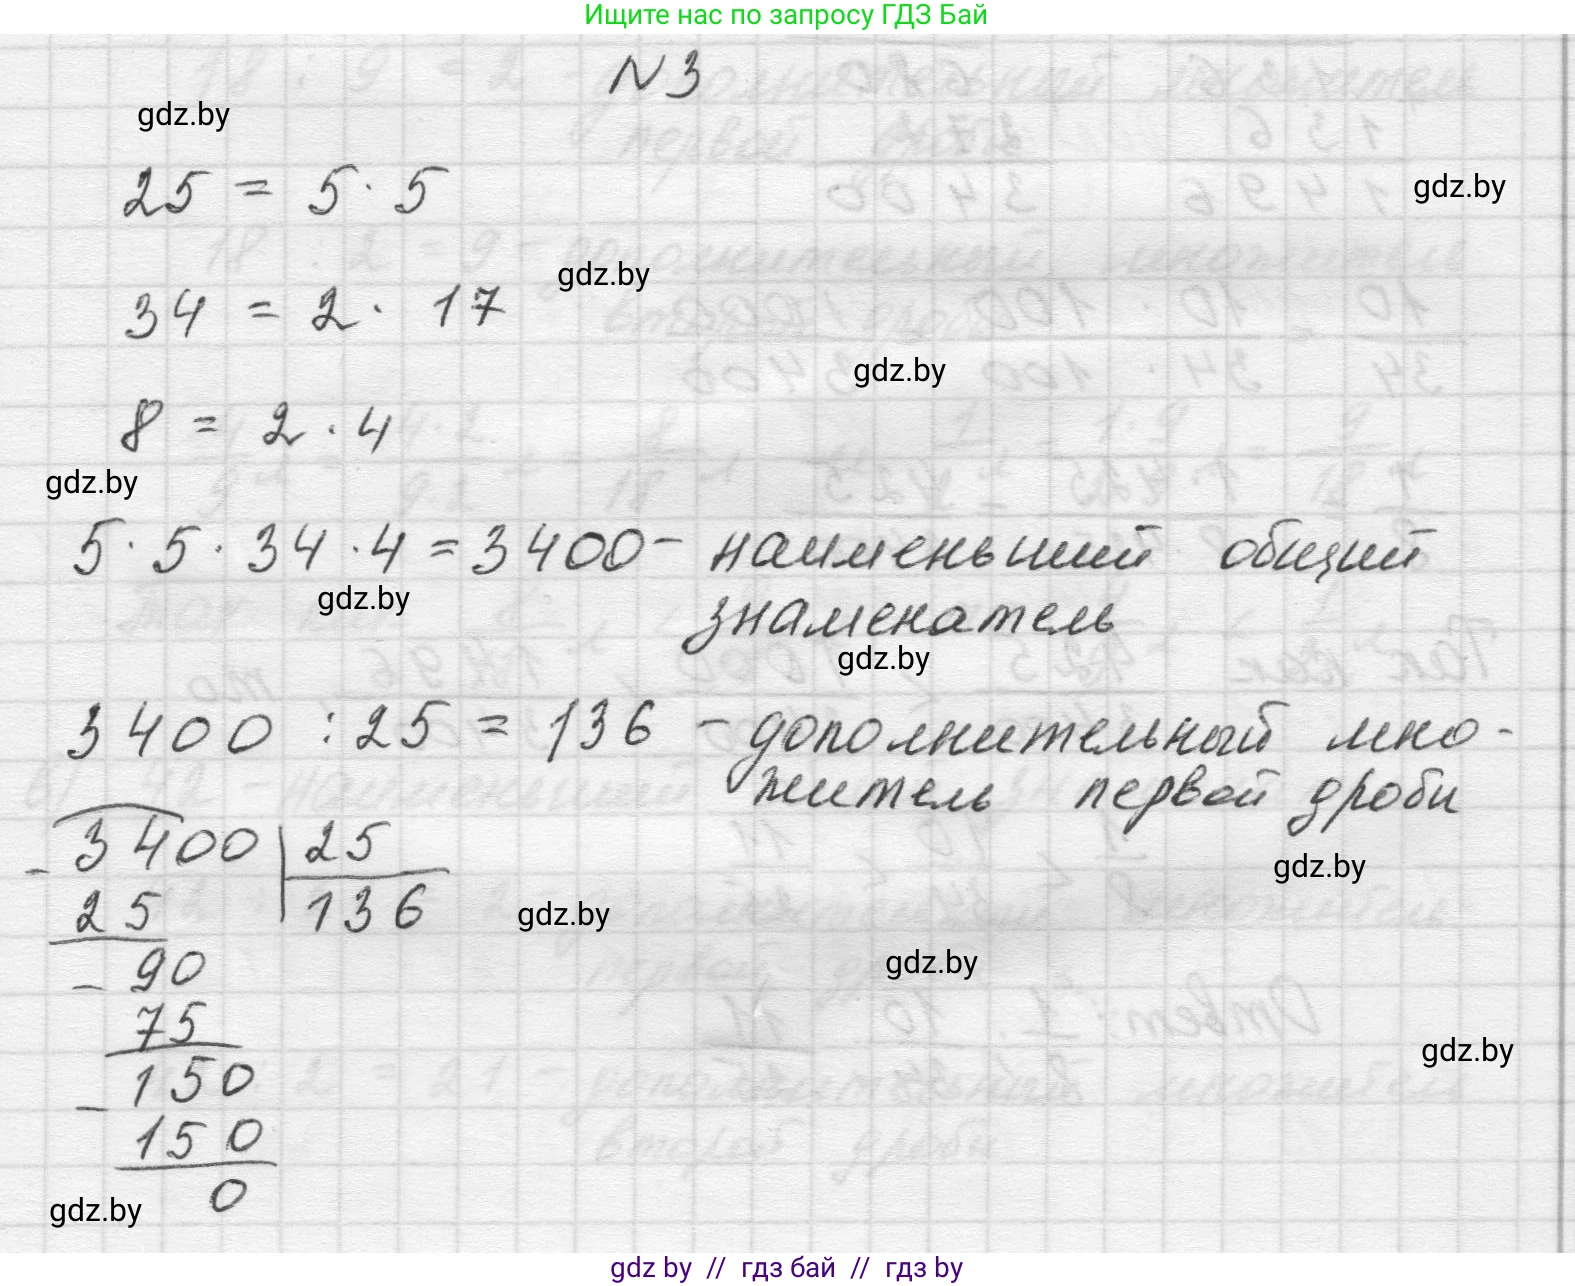 Ищите нас по запросу ГДЗ Бай
N 3
gdz.by
25 = 5 · 5
gdz.by
34 = 2 · 17
gdz.by
gdz.by
8 = 2 · 4
gdz.by
5 · 5 · 34 · 4 = 3400 - наименьший общий
gdz.by
знаменатель
gdz.by
3400 : 25 = 136 - дополнительный мно-
житель первой дроби
- 3400 | 25
gdz.by
25 136
gdz.by
- 90
gdz.by
75
gdz.by
- 150
150
0
gdz.by
gdz by // гдз бай // гдз by